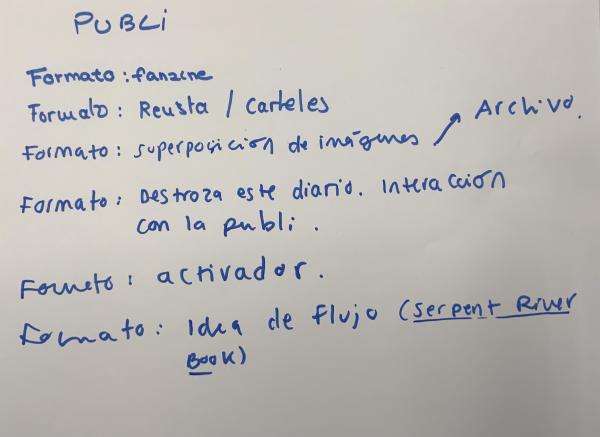 PUBLI
Formato: fanzine
Formato: Revista / Carteles
Formato: superposición de imágenes ↗ Archivo.
Formato: Destroza este diario. Interacción
con la publi.
Formato: activador.
Formato: Idea de flujo (Serpent River
Book)